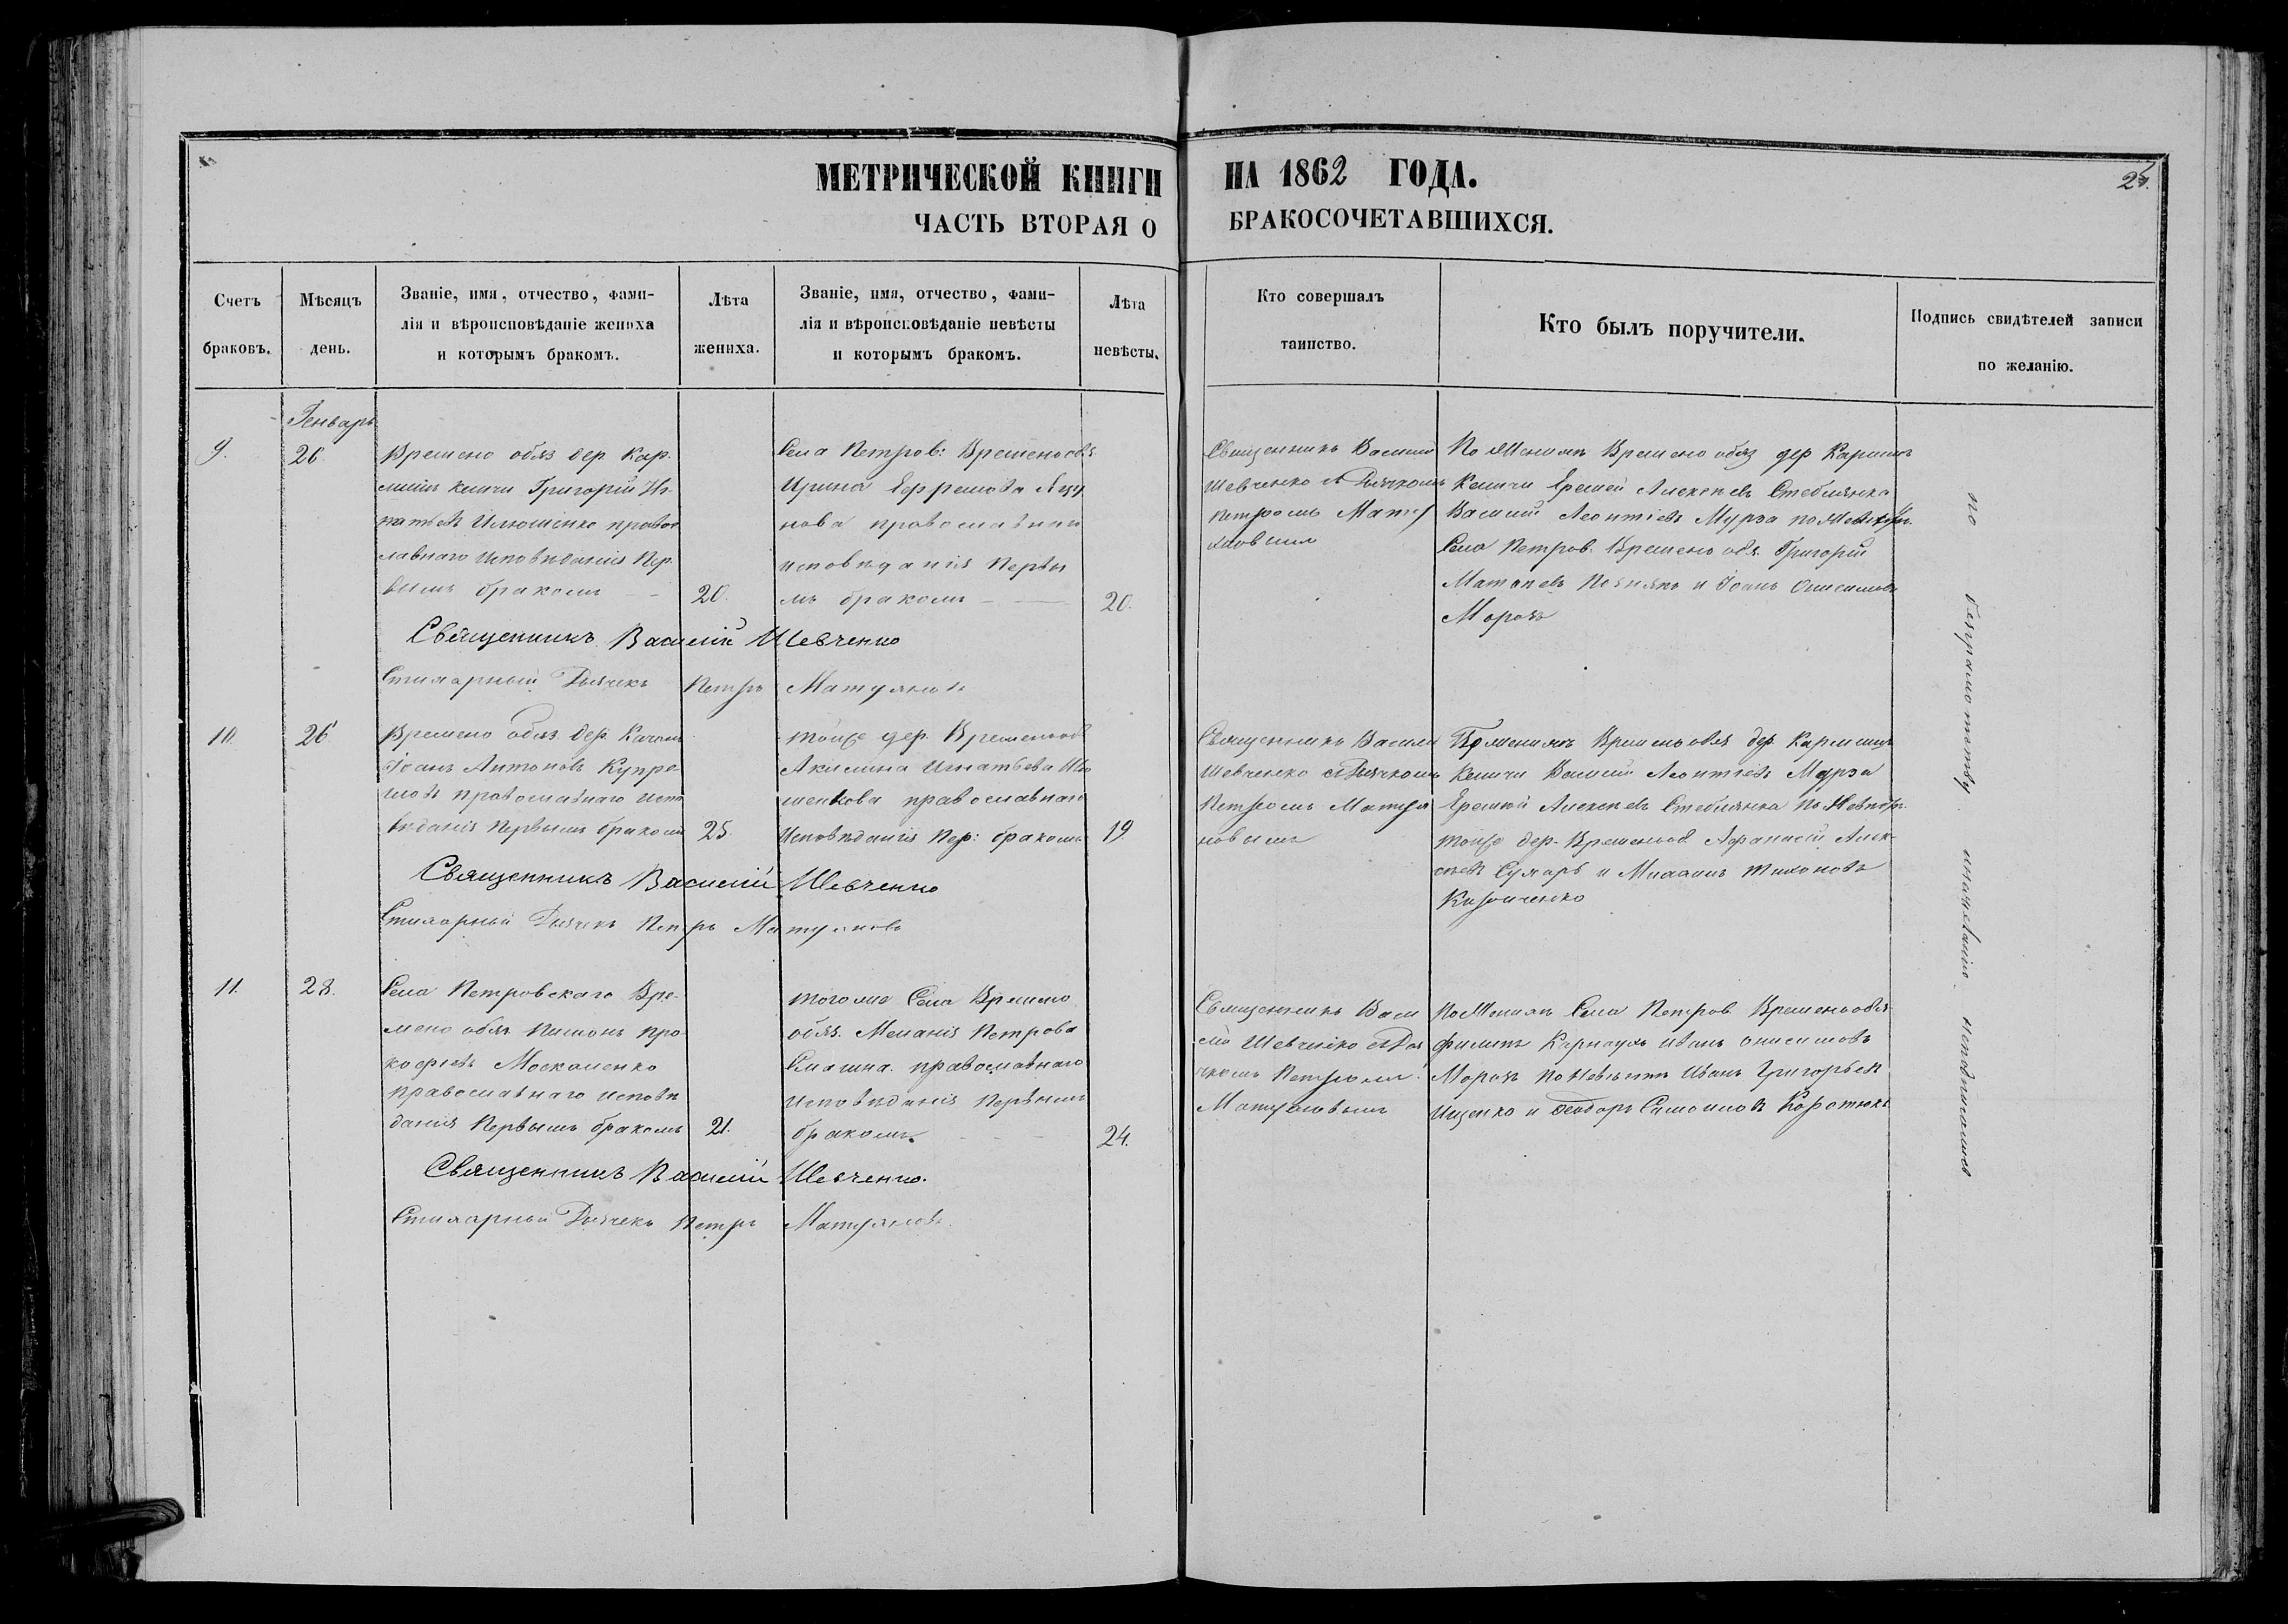 МЕТРИЧЕСКОЙ КНИГИ НА 1862 ГОДА.
25.
ЧАСТЬ ВТОРАЯ О БРАКОСОЧЕТАВШИХСЯ.
Счетъ
браковъ.
Мѣсяцъ
день.
Званіе, имя, отчество, фами-
лія и вѣроисповѣданіе жениха
и которымъ бракомъ.
Лѣта
жениха.
Званіе, имя, отчество, фами-
лія и вѣроисповѣданіе невѣсты
и которымъ бракомъ.
Лѣта
невѣсты.
Кто совершалъ
таинство.
Кто былъ поручители.
Подпись свидѣтелей записи
по желанію.
Генварь
9.
26
Времено обяз дер. Кар-
Григорій Иг-
натьевъ Илюшенко правос
лавнаго исповѣданія Пер-
вымъ бракомъ
20.
Села Петров: Временообяз
Ирина Ефремова
нова православнаго
исповѣданія Первы
мъ бракомъ
20.
Священникъ Василій
Шевченко съ Дьячкомъ
Петромъ Матуя
новымъ
По Женихѣ Времено обяз дер
Еремей Алексѣевъ Стеблянко
Василій Леонтіевъ Мурза по Невѣстѣ
Села Петров. Времено обя. Григорій
Матвѣевъ и Іоанъ Онисимовъ
Морозъ
Священникъ Василій Шевченко
Стихарный Дьячекъ Петръ Матуяновъ
10.
26
Времено обяз. дер.
Іоанъ Антоновъ Купре
православнаго испо
вѣданія Первымъ бракомъ
25.
тойже дер. Временообя
Акилина Игнатьева Илю
шенкова православнаго
Исповѣданія Пер: бракомъ
19.
Священникъ Васили
Шевченко съ Дьячкомъ
Петромъ Матуя
новымъ
По женихѣ Временообяз дер.
Василій Леонтіевъ Мурза
Еремей Алексѣевъ Стеблянко По Невѣстѣ
тойже дер. Временооб Афанасій Алек-
сѣевъ и Тихоновъ
Священникъ Василій Шевченко
Стихарный Дьячекъ Петръ Матуяновъ
11.
28.
Села Петровскаго Вре-
мено обяз. Про
кофіевъ Москаленко
Православнаго исповѣ
данія Первымъ бракомъ
21.
тогоже Села Времено
обяз. Меланія Петрова
православнаго
Исповѣданія Первымъ
бракомъ.
24.
Священникъ Васи
лій Шевченко съ Дья
чкомъ Петромъ
Матуяновымъ
По Женихѣ Села Петров Временообяз
Филипъ Карнаухъ Иванъ Онисимовъ
Морозъ По Невѣстѣ Иванъ Григорьевъ
Ищенко и Феодоръ Симоновъ Коротюкъ
Священникъ Василій Шевченко.
Стихарный Дьячекъ Петръ Матуяновъ.
по безграмотству